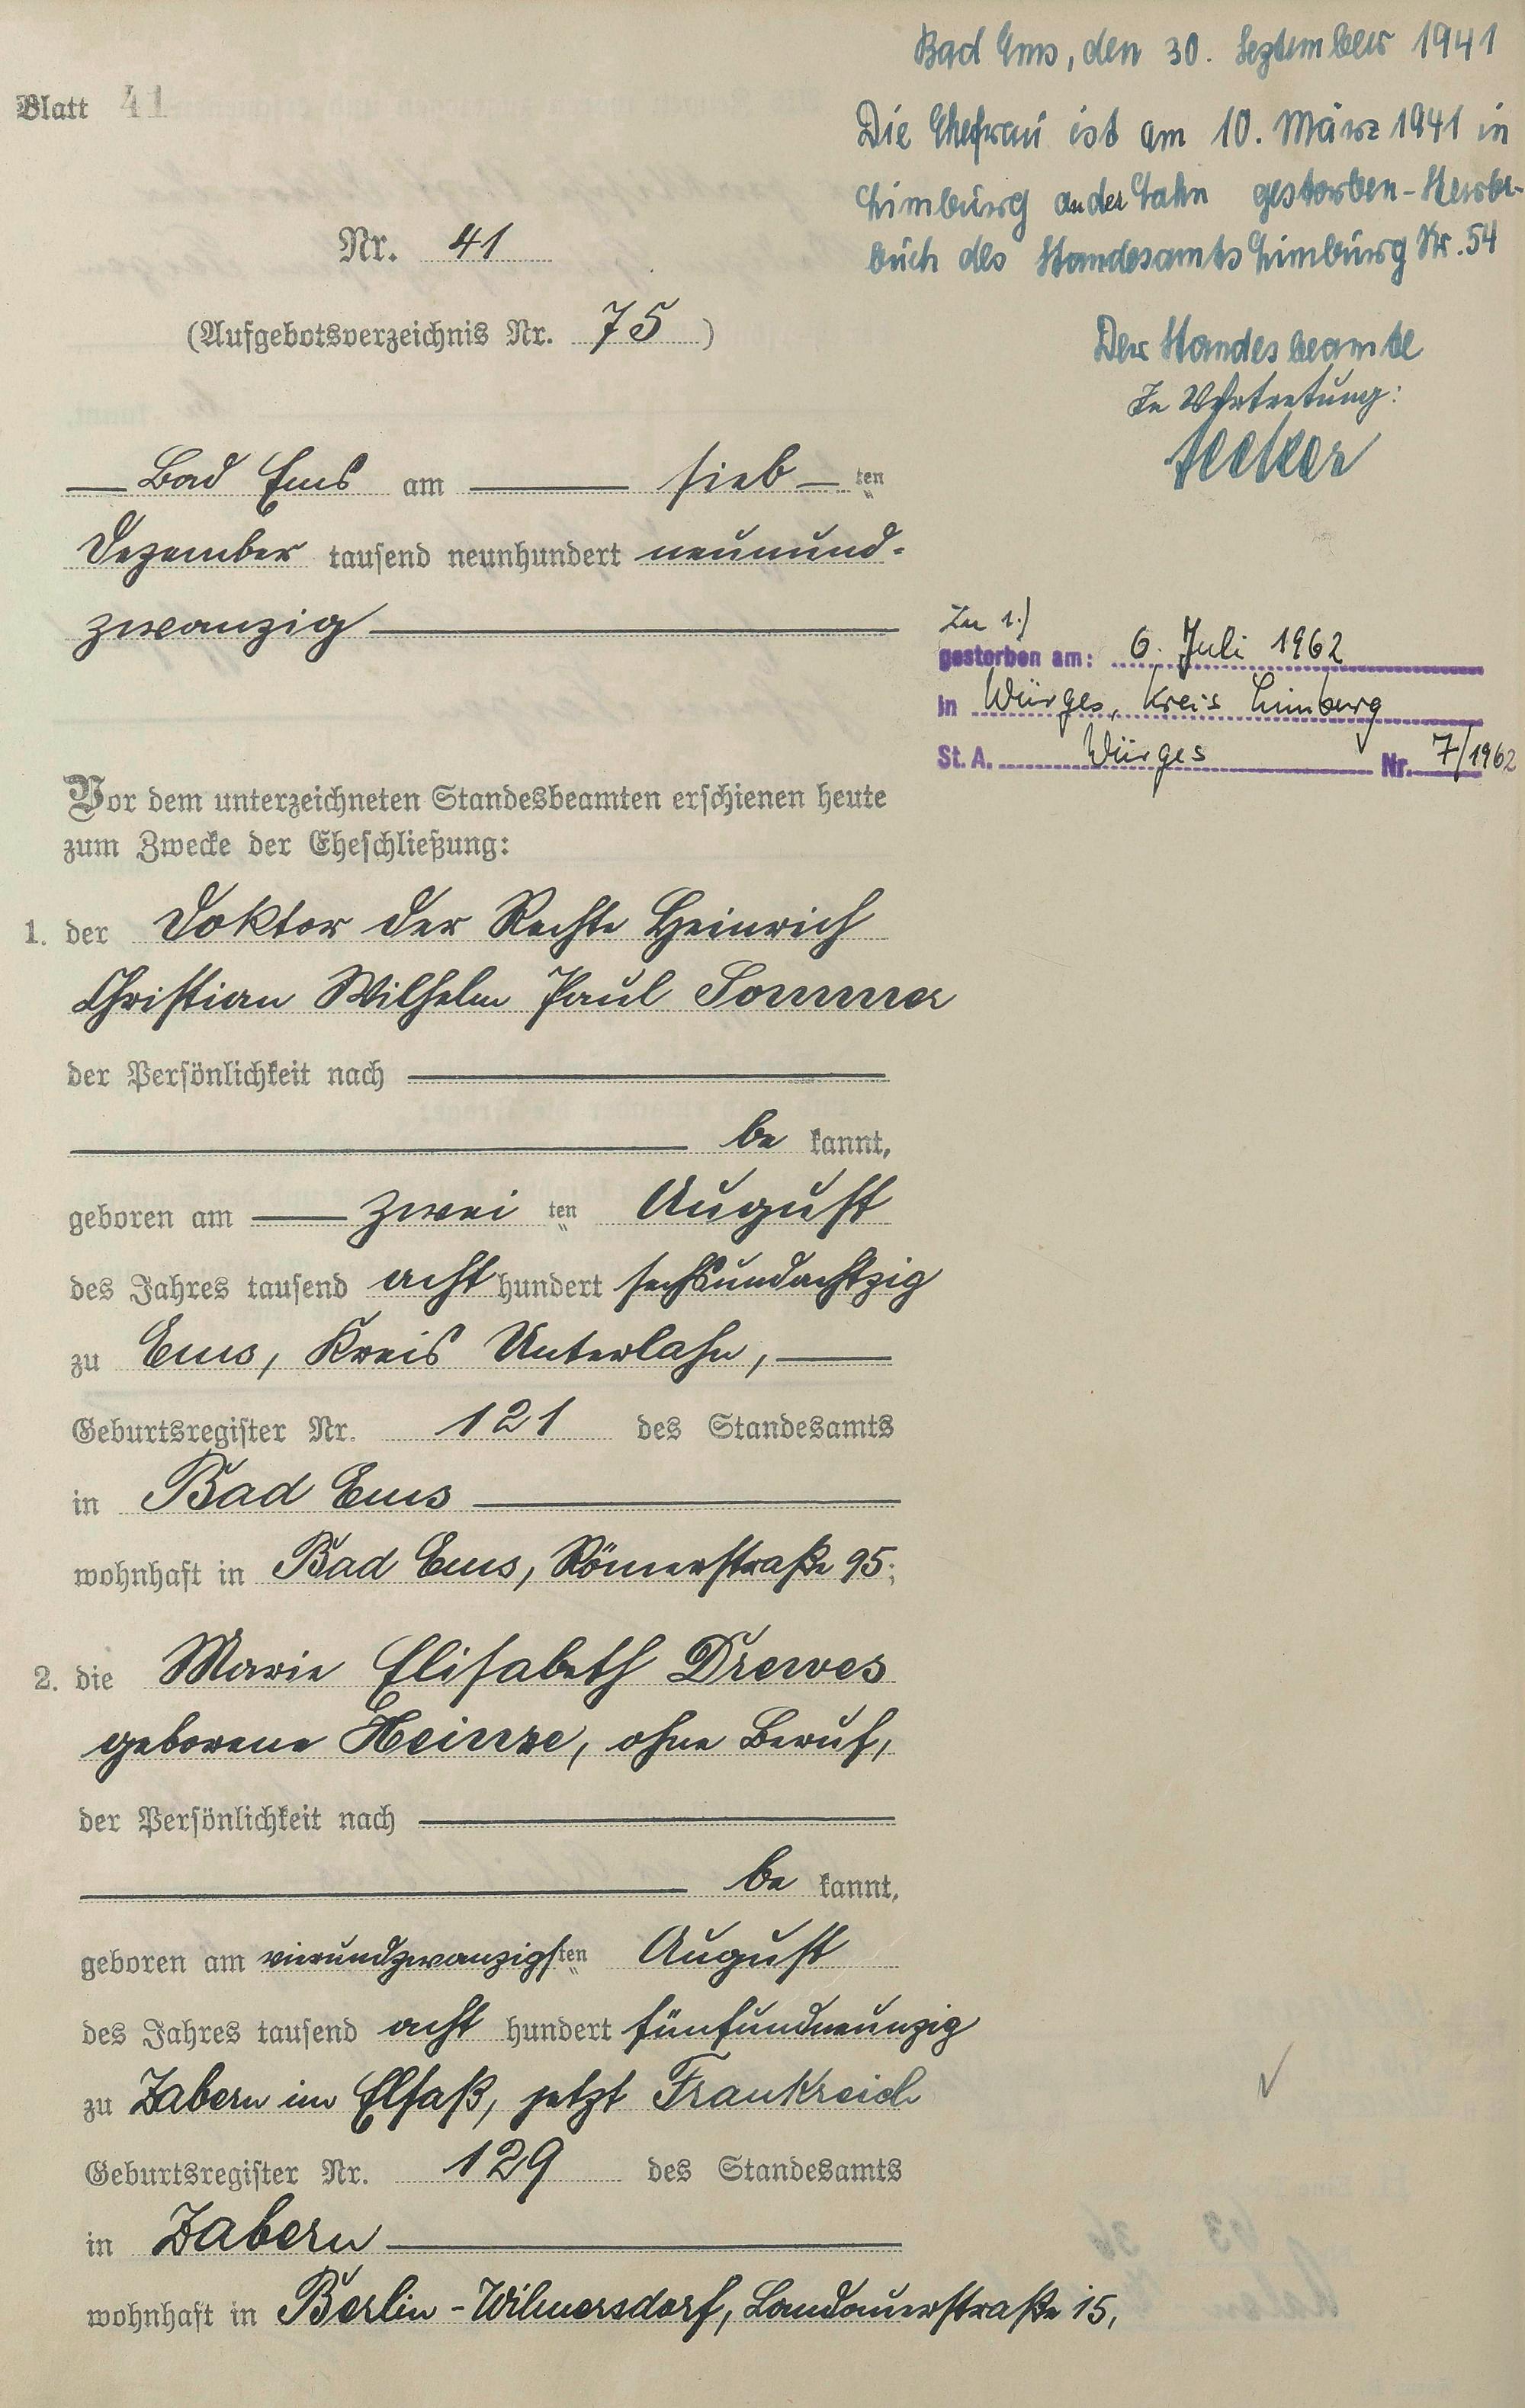 Blatt 41
Nr. 41
(Aufgebotsverzeichnis Nr. 75)
Bad Ems am sieb ten
Dezember tausend neunhundert neunund-
zwanzig
Vor dem unterzeichneten Standesbeamten erschienen heute
zum Zwecke der Eheschließung:
1. der Doktor der Rechte Heinrich
Christian Wilhelm Paul Sommer
der Persönlichkeit nach
be kannt,
geboren am zwei ten August
des Jahres tausend acht hundert sechsundachtzig
zu Ems, Kreis Unterlahn,
Geburtsregister Nr. 121 des Standesamts
in Bad Ems
wohnhaft in Bad Ems, Römerstraße 95;
2. die Marie Elisabeth Drewes
geborene Heinze, ohne Beruf,
der Persönlichkeit nach
be kannt,
geboren am vierundzwanzigsten August
des Jahres tausend acht hundert fünfundneunzig
zu Zabern im Elsaß, jetzt Frankreich
Geburtsregister Nr. 129 des Standesamts
in Zabern
wohnhaft in Berlin-Wilmersdorf, Landauerstraße 15,
Bad Ems, den 30. September 1941
Die Ehefrau ist am 10. März 1941 in
Limburg an der Lahn gestorben - Sterbe-
buch des Standesamts Limburg Nr. 54
Der Standesbeamte
In Vertretung:
Zu 1.)
gestorben am: 6. Juli 1962
in Würges, Kreis Limburg
St. A. Würges Nr. 7/1962